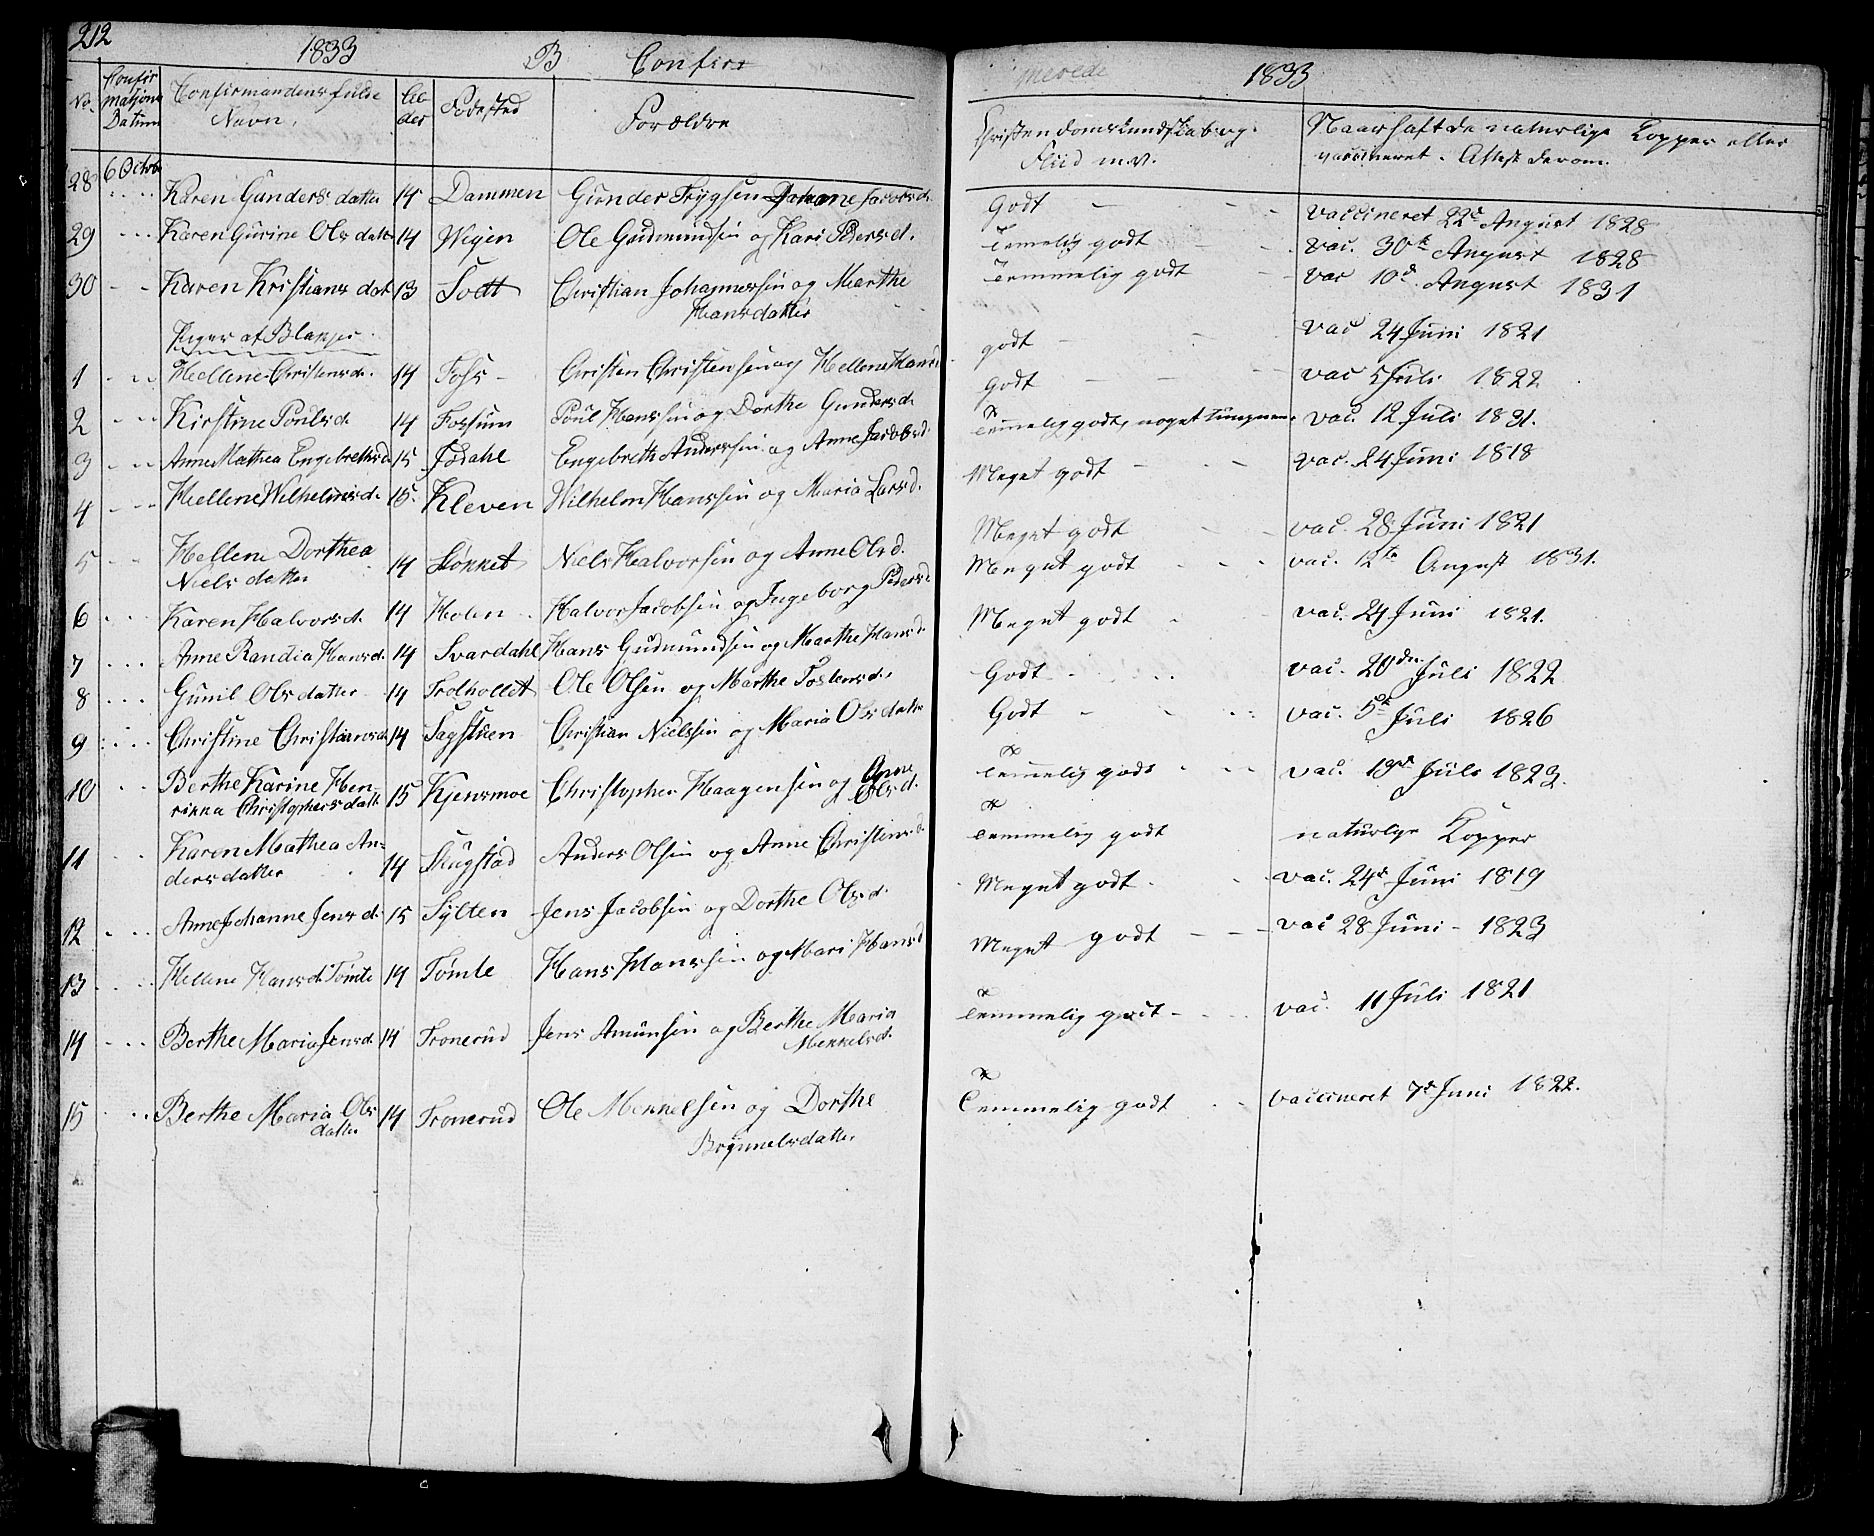 212
1833 B Confir
merede 1833
No. Confirmatjons Datum Confirmandens fulde Navn. Alder Fødested Forældre Christendomskundskab og Flid m.v. Naar haft de naturlige Kopper eller vaccineret. Attest derom.
28 6 Octobr Karen Gunders datter 14 Dammen Gunder Trygsen Johanne Jacobsd. Godt vaccineret 22de August 1828
29 Karen Gurine Ols datt 14 Wigen Ole Gudmundsen og Kari Pedersd. Temmelig godt vac. 30te August 1828
30 Karen Kristians dat 13 Todt Christian Johannessen og Marthe Hansdatter Temmelig godt vac 10d August 1831
Piger af Blakjer
1 Hellene Christensd. 14 Fohs Christen Christensen og Hellene Hansd godt vac 24 Juni 1821
2 Kirstine Poulsd. 14 Fossum Poul Hanssen og Dorthe Gundersd. Godt vac 5 Juli 1822
3 Anne Mathea Engebrethsd 15 Jødahl Engebreth Anderssen og Anne Jacobsd. Temmelig godt, noget tungnem vac. 12 Juli 1831.
4 Hellene Wilhelmsd. 15. Kleven Wilhelm Hanssen og Maria Larsd. Meget godt vac. 24 Juni 1818
5 Hellene Dorthea Niels datter 14 Støkket Niels Halvorsen og Anne Olsd. Meget godt vac. 28 Juni 1821
6 Karen Halvorsd. 14 Holen Halvor Jacobsen og Ingeborg Pedersd. Meget godt vac. 12te August 1831.
7 Anne Randia Hansd. 14 Svardahl Hans Gudmundsen og Marthe Hansd. Meget godt vac. 24 Juni 1821.
8 Gunil Olsdatter 14 Trolhollet Ole Olsen og Marthe Tostensd. Godt vac. 20den Juli 1822
9 Christine Christiansd. 14 Sagstuen Christian Nielssen og Maria Olsdatter Godt vac. 5te Juli 1826
10 Berthe Karine Henrikka Christophersdatt 15 Kjensmoe Christopher Haagensen og Anne Olsd. Temmelig godt vac. 19de Juli 1823.
11 Karen Mathea Andersdatter 14 Skugstad Anders Olsen og Anne Christensd. Temmelig godt naturlige Kopper
12 Anne Johanne Jensd. 15 Sylten Jens Jacobsen og Dorthe Olsd. Meget godt vac. 24de Juni 1819
13 Hellene Hansd. Tomte 14 Tomte Hans Hanssen og Mari Hansd Meget godt vac 28 Juni 1823
14 Berthe Maria Jensd. 14 Tronerud Jens Amunsen og Berthe Maria Mekkelsd. Temmelig godt vac. 11 Juli 1821
15 Berthe Maria Olsdatter 14 Tronerud Ole Mekkelsen og Dorthe Brynnelsdatter Temmelig godt vaccineret 7de Juni 1822.